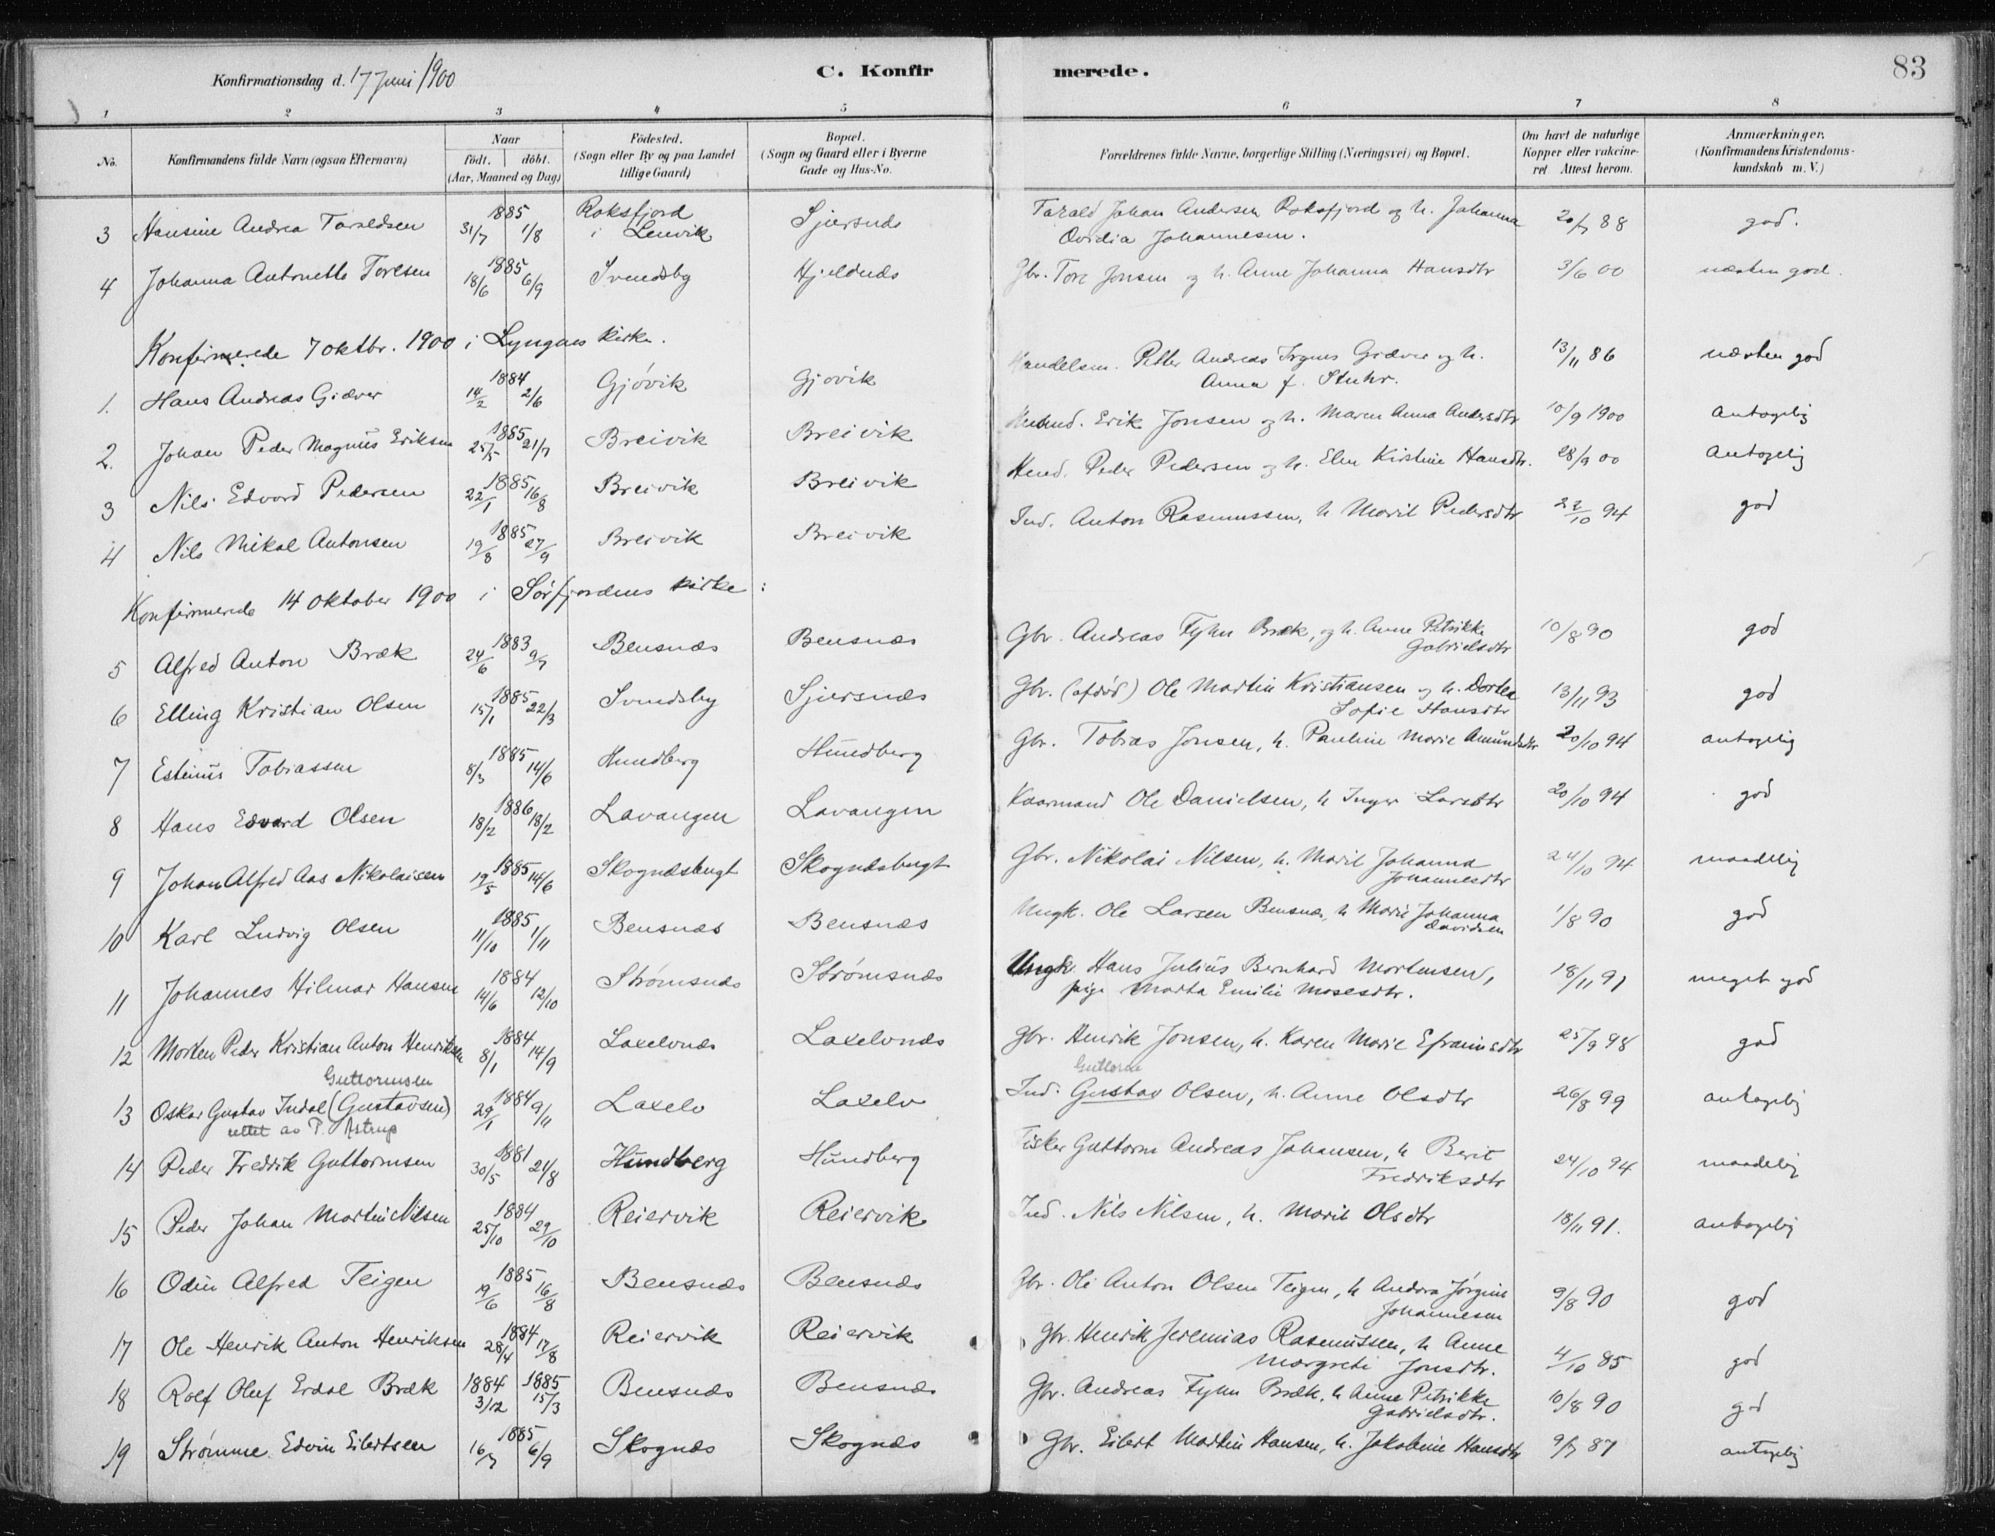 Konfirmationsdag d. 17 Juni 1900 C. Konfirmerede. 83
1 2 3 4 5 6 7 8
No. Konfirmandens fulde Navn (ogsaa Efternavn) Naar födt. döbt. (Aar, Maaned og Dag) Födested. (Sogn eller By og paa Landet tillige Gaard) Bopæl. (Sogn og Gaard eller i Byerne Gade og Hus-No. Forældrenes fulde Navne, borgerlige Stilling (Næringsvei) og Bopæl. Om havt de naturlige Kopper eller vakcineret Attest herom. Anmærkninger, (Konfirmandens Kristendomskundskab m. V.)
3 Hansine Andrea Taraldsen 1885 31/7 1/8 Roksfjord i Lenvik Sjursnes Tarald Johan Andersen Roksfjord og h. Johanna Ovidia Johannesen. 20/7 88 god.
4 Johanna Antonette Toresen 1885 18/6 6/9 Svendsby Hjeldnes Gbr. Tore Jonsen og h. Anne Johanna Hansdtr 3/6 00 næsten god.
Konfirmerede 7 oktbr. 1900 i Lyngens kirke.
1. Hans Andreas Giæver 1884 14/2 2/6 Gjövik Gjovik Handelsm. Petter Andreas Giæver og h. Anna f. Stuhr. 13/11 86 næsten god
2. Johan Peder Magnus Eriksen 1885 25/5 21/7 Breivik Breivik Erik Jonsen og h. Maren Anna Andersdtr 10/9 1900 antagelig
3 Nils Edvard Pedersen 1885 22/1 16/8 Breivik Breivik Peder Pedersen og h. Elen Kirstine Hansdtr. 28/9 00 antagelig
4 Nils Mikal Antonsen 1885 19/8 27/9 Breivik Breivik Ind. Anton Rasmussen, h Marit Pedersdtr 23/10 94 god
Konfirmerede 14 oktober 1900 i Sörfjordens kirke:
5 Alfred Anton Bræk 1883 24/6 9/7 Bensnæs Bensnæs Gbr. Andreas Fyhn Bræk, og h. Anne Petrikke Gabrielsdtr 10/8 90 god
6 Elling Kristian Olsen 1885 15/1 22/3 Svendsby Sjursnæs Gbr. (afdöd) Ole Martin Kristiansen og h. Dortea Sofie Hansdtr 13/11 93 god
7 Estinus Tobiassen 1885 8/3 14/6 Hundberg Hundberg Gbr. Tobias Jonsen, h. Pauline Marie Amundsdtr 20/10 94 antagelig
8 Hans Edvard Olsen 1886 18/2 18/2 Lavangen Lavangen Kaarmand Ole Danielsen, h Inger Larsdtr 20/10 94 god
9 Johan Alfred Aas Nikolaisen 1885 19/5 14/6 Skognæsbugt Skognæsbugt Gbr. Nikolai Nilsen, h. Marit Johanna Johannesdtr 24/10 94 maadelig
10 Karl Ludvig Olsen 1885 11/10 1/11 Bensnæs Bensnæs Ungk. Ole Larsen Bensnæs, h Marie Johanna Davidsen 1/8 90 god
11 Johannes Hilmar Hansen 1884 14/6 12/10 Strømsnæs Strømsnæs Ungk. Hans Julius Bernhard Mortensen, pige Marta Emilie Mosesdtr. 18/11 91 meget god
12 Morten Peder Kristian Anton Henriksen 1884 8/1 14/9 Laxelvnæs Laxelvnæs Gbr. Henrik Jonsen, h. Karen Marie Efraimsdtr 25/9 98 god
Guttormsen Guttorm
13 Oskar Gustav Indal (Gustavsen) 1884 29/1 9/11 Laxelv Laxelv Ind. Gustav Olsen, h. Anne Olsdtr 26/8 99 antagelig
rettet av P. Astrup
14 Peder Fredrik Guttormsen 1881 30/5 21/8 Hundberg Hundberg Fisker Guttorm Andreas Johansen, h Berit Fredriksdtr 24/10 94 maadelig
15 Peder Johan Martin Nilsen 1884 25/10 29/10 Reiervik Reiervik Ind. Nils Nilsen, h. Marit Olsdtr 18/11 91. antagelig
16 Odin Alfred Teigen 1885 19/6 16/8 Bensnæs Bensnæs Gbr. Ole Anton Olsen Teigen, h Andrea Jørgine Johannesen 9/8 90 god
17 Ole Henrik Anton Henriksen 1884 28/4 17/8 Reiervik Reiervik Gbr. Henrik Jeremias Rasmussen, h Anne Margrete Jonsdtr. 4/10 85 god
18 Rolf Oluf Erdal Bræk 1884 3/12 1885 15/3 Bensnæs Bensnæs Gbr. Andreas Fyhn Bræk, h Anne Petrikke Gabrielsdtr. 10/8 90 god
19 Strømme Edvin Eilertsen 1885 16/7 6/9 Skognæs Skognæs Gbr. Eilert Martin Hansen, h. Jakobine Hansdtr 9/7 87 antagelig